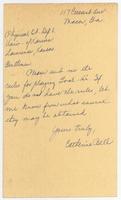 117 Averard Ave
Macon, Ga.
Physical Ed. Dept.
Univ. of Kansas
Lawrence, Kansas
Gentlemen:
Please send me the
rules for playing Goal-Hi. If
you do not have the rules, let
me know from what source
they may be obtained.
Yours truly,
Catherine Bell